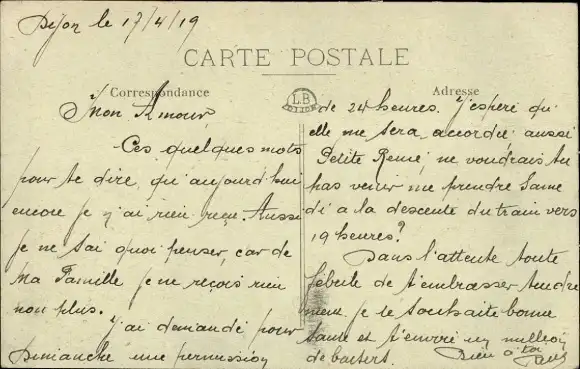 Dijon le 17/4/19
CARTE POSTALE
Correspondance
LB
DIJON
Adresse
Mon Amour,
Ces quelques mots
pour te dire, qu'aujourd'hui
encore je n'ai rien reçu. Aussi
je ne sai quoi penser, car de
Ma Famille je ne reçois rien
non plus.
J'ai demandé pour
Dimanche une permission
de 24 heures. J'espere qu'
elle me sera accordée aussi
Petite Reine, ne voudrais tu
pas venir me prendre Same
di a la descente du train vers
19 heures?
Dans l'attente toute
fébrile de t'embrasser tendre
ment je te souhaite bonne
Santé et t'envoie un million
de baisers.
Bien à toi